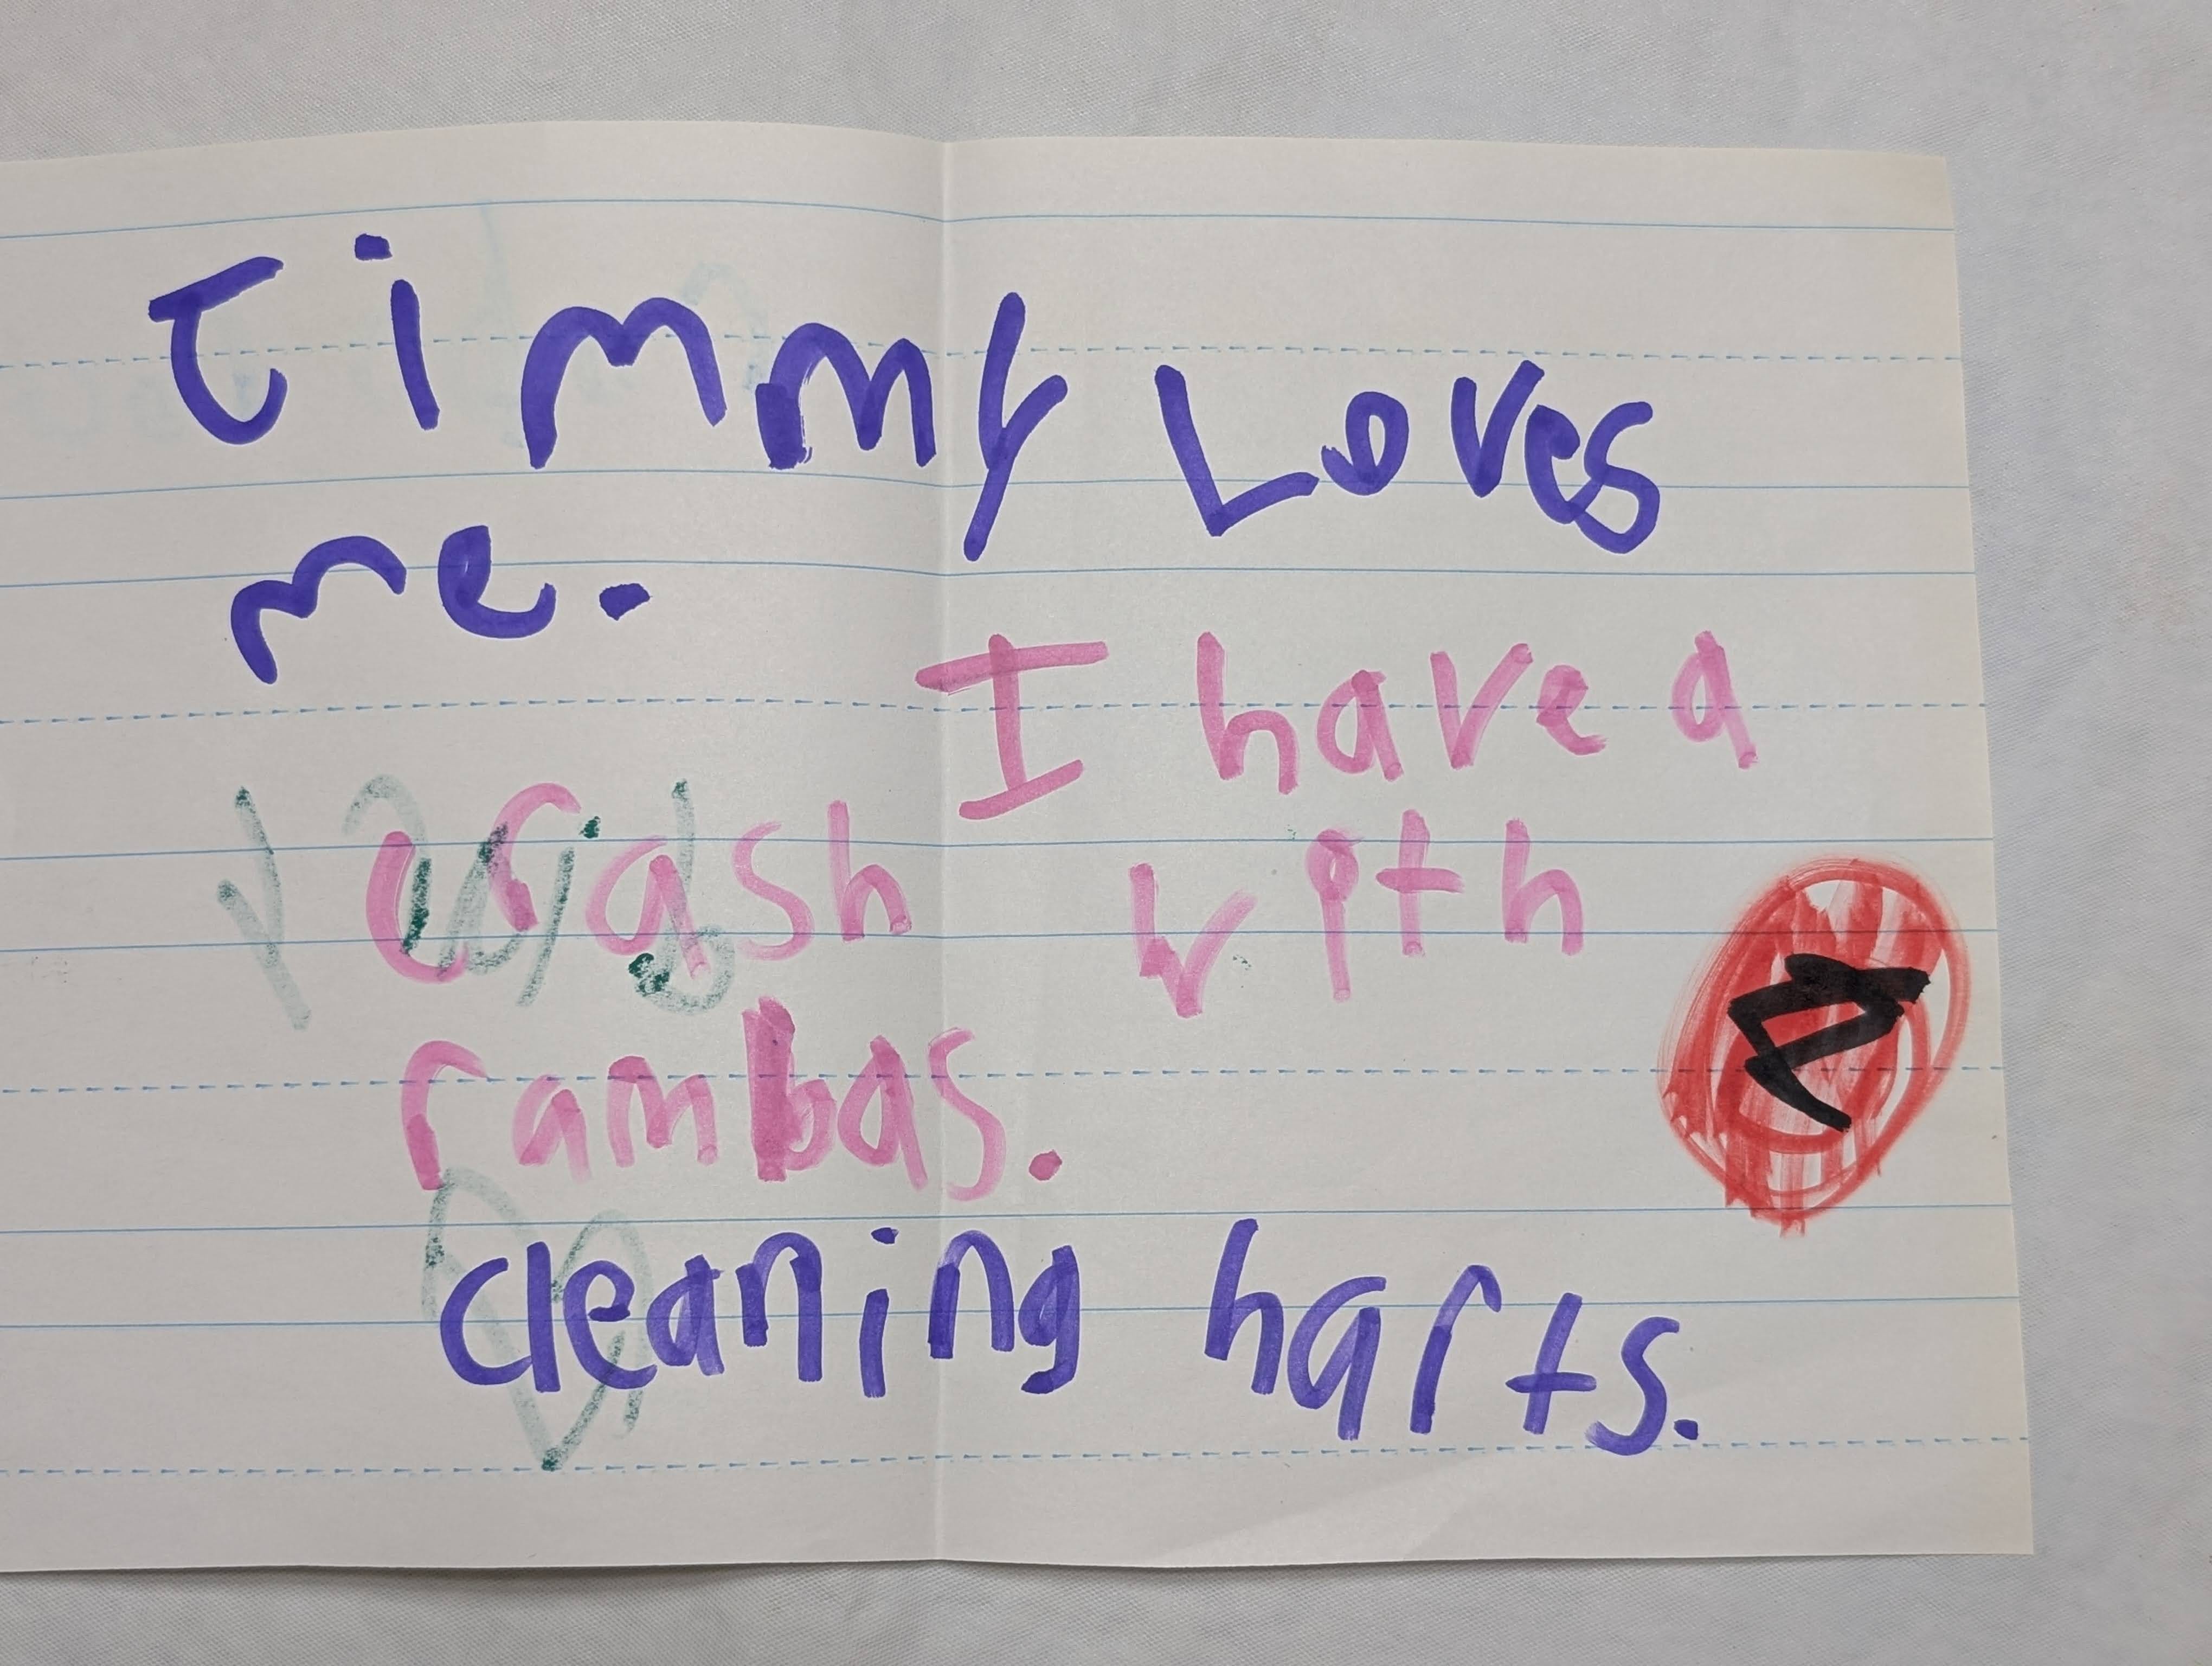 timmy Loves
me.
I have a
crash with
rambas.
cleaning harts.